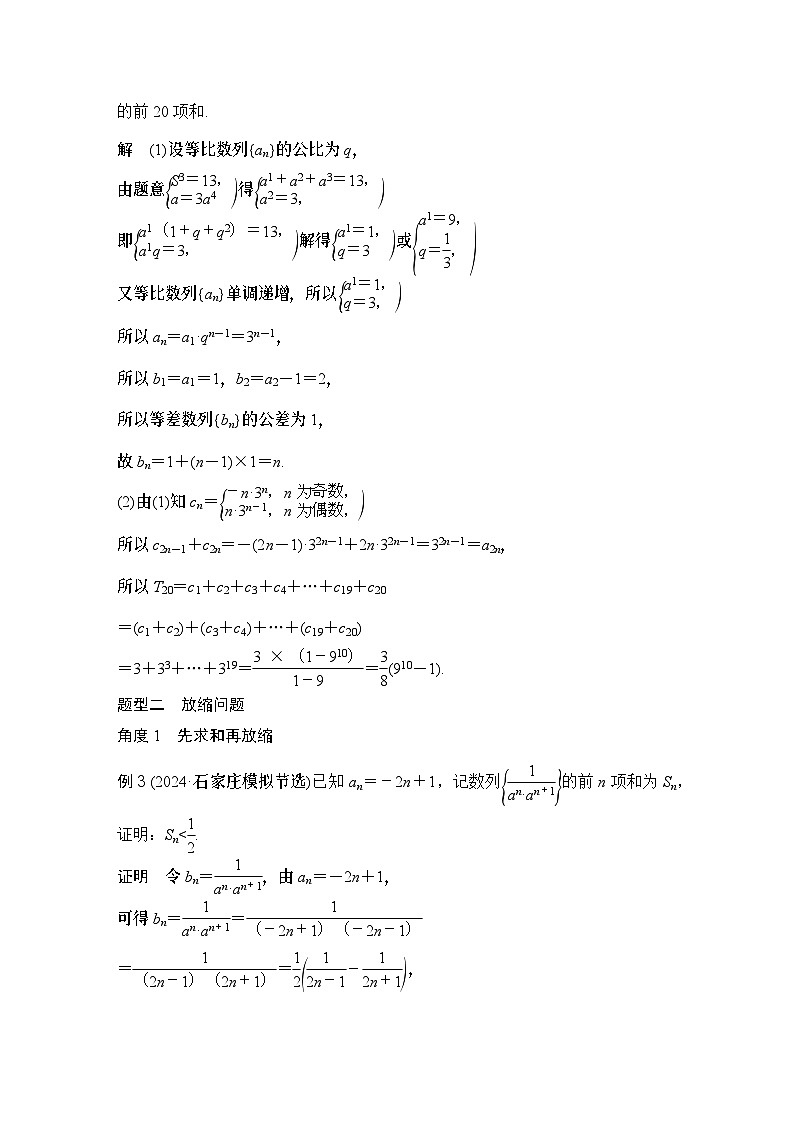 的前 20 项和.
解　(1)设等比数列{aₙ}的公比为 q，
由题意{S3＝13，a＝3a4 )得{a1＋a2＋a3＝13，a2＝3，)
即{a1（1＋q＋q2）＝13，a1q＝3，)解得{a1＝1，q＝3 )或{a1＝9，q＝1/3，)
又等比数列{aₙ}单调递增，所以{a1＝1，q＝3，)
所以 aₙ＝a₁·qⁿ⁻¹＝3ⁿ⁻¹，
所以 b₁＝a₁＝1，b₂＝a₂－1＝2，
所以等差数列{bₙ}的公差为 1，
故 bₙ＝1＋(n－1)×1＝n.
(2)由(1)知 cₙ＝{－n·3ⁿ，n 为奇数，n·3ⁿ⁻¹，n 为偶数，)
所以 c₂ₙ₋₁＋c₂ₙ＝－(2n－1)·3²ⁿ⁻¹＋2n·3²ⁿ⁻¹＝3²ⁿ⁻¹＝a₂ₙ，
所以 T₂₀＝c₁＋c₂＋c₃＋c₄＋…＋c₁₉＋c₂₀
＝(c₁＋c₂)＋(c₃＋c₄)＋…＋(c₁₉＋c₂₀)
＝3＋3³＋…＋3¹⁹＝3 ×（1－9¹⁰）/1－9＝3/8(9¹⁰－1).
题型二　放缩问题
角度 1　先求和再放缩
例 3 (2024·石家庄模拟节选)已知 aₙ＝－2n＋1，记数列{1/an·an＋1}的前 n 项和为 Sₙ，
证明：Sₙ<1/2.
证明　令 bₙ＝1/an·an＋1，由 aₙ＝－2n＋1，
可得 bₙ＝1/an·an＋1＝1/（－2n＋1）（－2n－1）
＝1/（2n－1）（2n＋1）＝1/2(1/2n－1－1/2n＋1)，